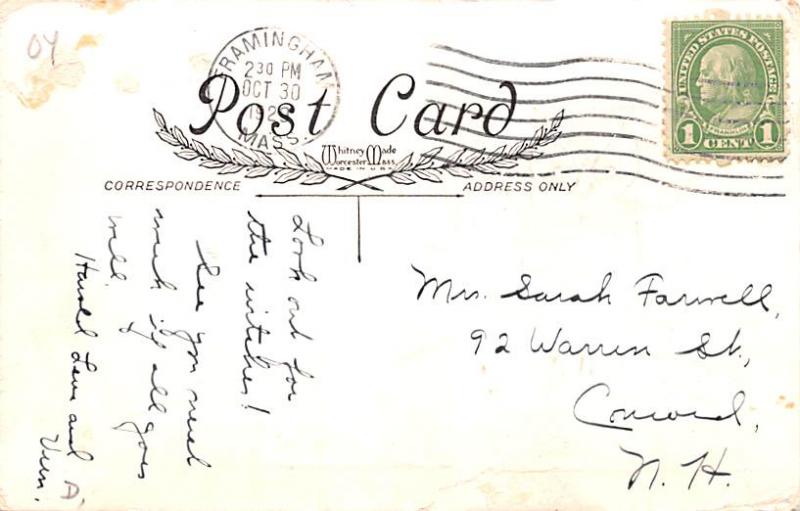 04
FRAMINGHAM
2 30 PM
OCT 30
MASS.
UNITED STATES POSTAGE
FRANKLIN
1 CENT 1
Post Card
Whitney Made
Worcester Mass.
MADE IN U.S.A.
CORRESPONDENCE
ADDRESS ONLY
Look out for
the witches!
See you next
week if all goes
well.
Harold and
Vern.
Mrs. Sarah Farwell,
92 Warren St.,
Concord,
N. H.